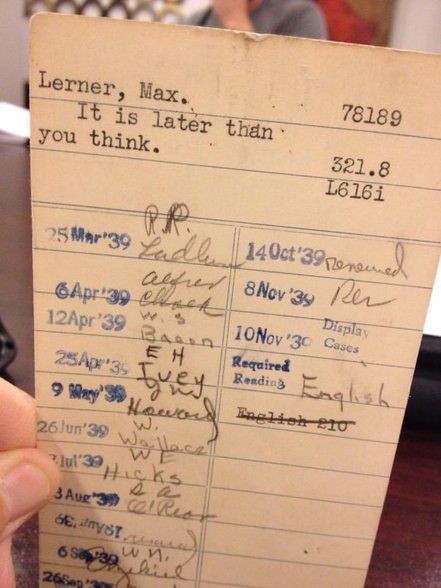 Lerner, Max.
78189
It is later than
you think.
321.8
L616i
P.R.
25 Mar '39 Ludlum
Alfred
6 Apr '39
W. S
12 Apr '39 Bacon
E H
25 Apr '39 Ivey
J W
9 May '39 Howard
W.
26 Jun '39 Wallace
W E
Jul '39 Hicks
S a
3 Aug '39 O'Rear
19 Aug '39
W n.
6 Sep '39 Ezekiel
26 Sep '39
14 Oct '39 renewed
8 Nov '39 Rev
Display
10 Nov '39 Cases
Required
Reading English
English 210